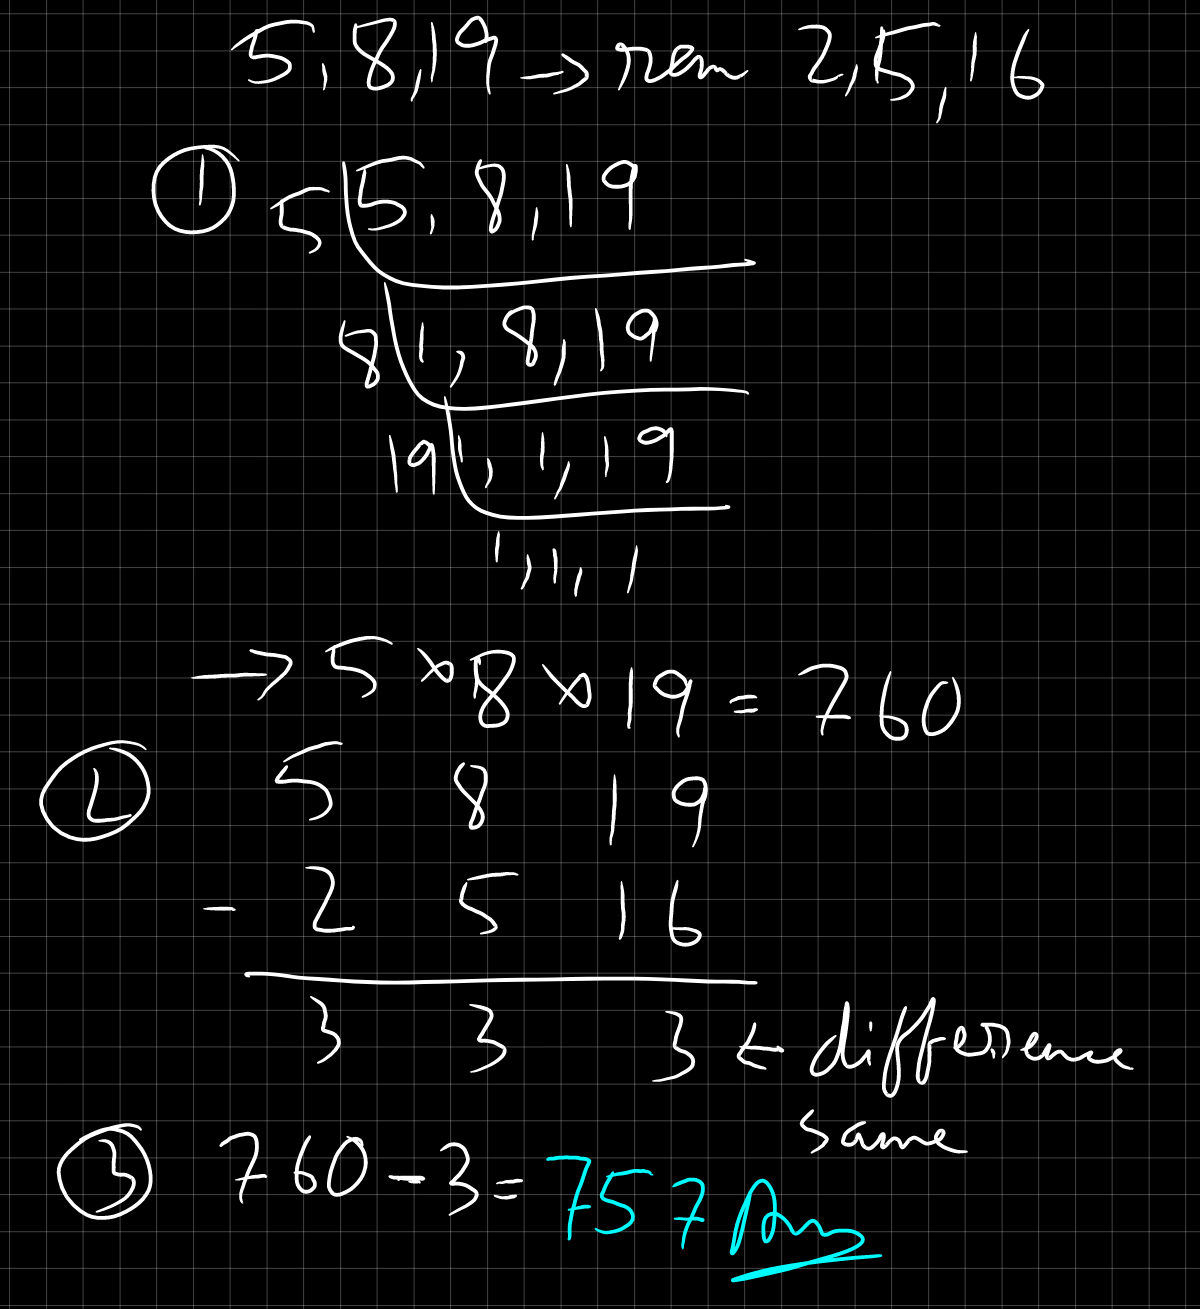 5, 8, 19 → rem 2, 5, 16
① 5 | 5, 8, 19
8 | 1, 8, 19
19 | 1, 1, 19
1, 1, 1
→ 5 × 8 × 19 = 760
② 5 8 19
- 2 5 16
3 3 3 ← difference
same
③ 760 - 3 = 757 Ans